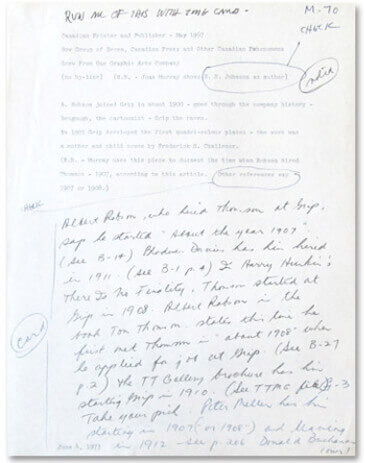 RUN ME OF THIS WITH THIS CARD.
M-70
CHECK
Canadian Printer and Publisher - May 1957
How Group of Seven, Canadian Press and Other Canadian Phenomena
Grew From One Graphic Arts Company
(no by-line) (N.B. - Joan Murray shows R. E. Johnson as author)
A. Robson joined Grip in about 1900 - goes through the company history -
Bengough, the cartoonist - Grip the raven.
In 1901 Grip developed the first quadri-colour plates - the work was
a mother and child scene by Frederick S. Challener.
(N.B. - Murray uses this piece to document the time when Robson hired
Thomson - 1907, according to this article. Other references say
1907 or 1908.)
CHECK
Albert Robson, who hired Thomson at Grip,
says he started "about the year 1907"
(see B-14) Blodwen Davies has him hired
in 1911 (see B-1 p.4) In Harry Hunkin's
There Is No Finality, Thomson started at
Grip in 1908. Albert Robson in the
book Tom Thomson states this time he
first met Thomson in "about 1908" when
he applied for job at Grip. (See B-27
p.2) The TT Gallery brochure has him
starting Grip in 1910. (See TTMG
Take your pick. Peter Mellen has him
starting in 1907 (or 1908) and leaving
in 1912 - see p. 206 Donald Buchanan
card
June 5, 1973
(over)